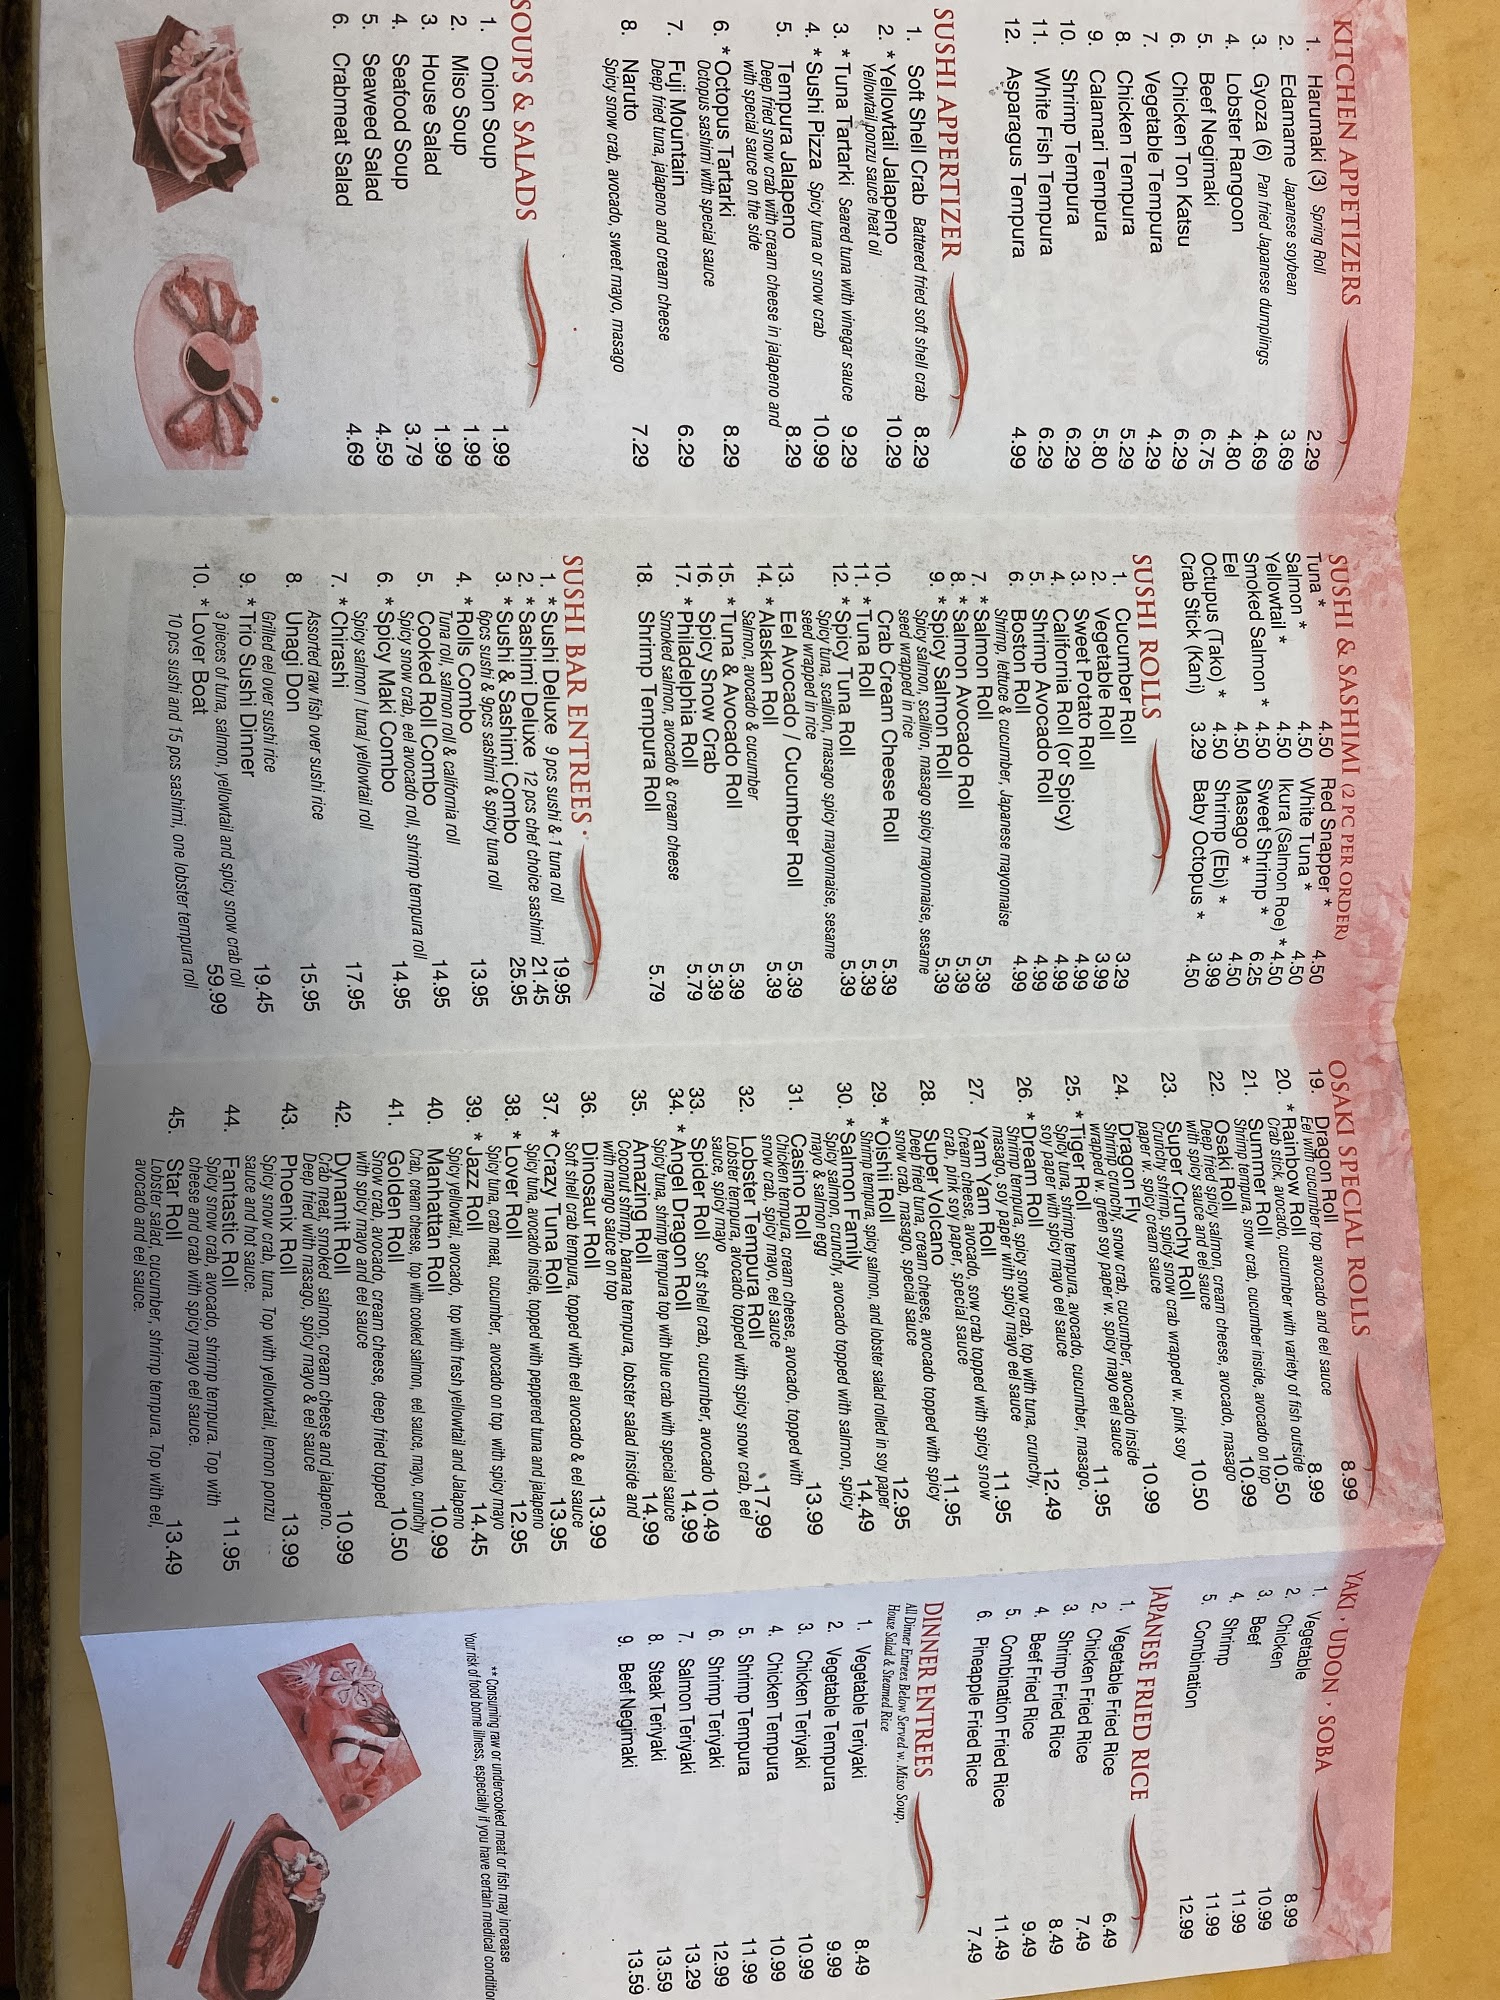 KITCHEN APPETIZERS
1. Harumaki (3) Spring Roll 2.29
2. Edamame Japanese soybean 3.69
3. Gyoza (6) Pan fried Japanese dumplings 4.69
4. Lobster Rangoon 4.80
5. Beef Negimaki 6.75
6. Chicken Ton Katsu 6.29
7. Vegetable Tempura 4.29
8. Chicken Tempura 5.29
9. Calamari Tempura 5.80
10. Shrimp Tempura 6.29
11. White Fish Tempura 6.29
12. Asparagus Tempura 4.99
SUSHI APPERTIZER
1. Soft Shell Crab Battered fried soft shell crab 8.29
2. * Yellowtail Jalapeno 10.29
Yellowtail,ponzu sauce heat oil
3. * Tuna Tartarki Seared tuna with vinegar sauce 9.29
4. * Sushi Pizza Spicy tuna or snow crab 10.99
5. Tempura Jalapeno 8.29
Deep fried snow crab with cream cheese in jalapeno and
with special sauce on the side
6. * Octopus Tartarki 8.29
Octopus sashimi with special sauce
7. Fuji Mountain 6.29
Deep fried tuna, jalapeno and cream cheese
8. Naruto 7.29
Spicy snow crab, avocado, sweet mayo, masago
SOUPS & SALADS
1. Onion Soup 1.99
2. Miso Soup 1.99
3. House Salad 1.99
4. Seafood Soup 3.79
5. Seaweed Salad 4.59
6. Crabmeat Salad 4.69
SUSHI & SASHIMI (2 PC PER ORDER)
Tuna * 4.50 Red Snapper * 4.50
Salmon * 4.50 White Tuna * 4.50
Yellowtail * 4.50 Ikura (Salmon Roe) * 4.50
Smoked Salmon * 4.50 Sweet Shrimp * 6.25
Eel 4.50 Masago * 4.50
Octupus (Tako) * 4.50 Shrimp (Ebi) * 3.99
Crab Stick (Kani) 3.29 Baby Octopus * 4.50
SUSHI ROLLS
1. Cucumber Roll 3.29
2. Vegetable Roll 3.99
3. Sweet Potato Roll 4.99
4. California Roll (or Spicy) 4.99
5. Shrimp Avocado Roll 4.99
6. Boston Roll 4.99
Shrimp, lettuce & cucumber, Japanese mayonnaise
7. * Salmon Roll 5.39
8. * Salmon Avocado Roll 5.39
9. * Spicy Salmon Roll 5.39
Spicy salmon, scallion, masago spicy mayonnaise, sesame
seed wrapped in rice
10. Crab Cream Cheese Roll 5.39
11. * Tuna Roll 5.39
12. * Spicy Tuna Roll 5.39
Spicy tuna, scallion, masago spicy mayonnaise, sesame
seed wrapped in rice
13. Eel Avocado / Cucumber Roll 5.39
14. * Alaskan Roll 5.39
Salmon, avocado & cucumber
15. * Tuna & Avocado Roll 5.39
16. Spicy Snow Crab 5.39
17. * Philadelphia Roll 5.79
Smoked salmon, avocado & cream cheese
18. Shrimp Tempura Roll 5.79
SUSHI BAR ENTREES
1. * Sushi Deluxe 9 pcs sushi & 1 tuna roll 19.95
2. * Sashimi Deluxe 12 pcs chef choice sashimi 21.45
3. * Sushi & Sashimi Combo 25.95
6pcs sushi & 9pcs sashimi & spicy tuna roll
4. * Rolls Combo 13.95
Tuna roll, salmon roll & california roll
5. Cooked Roll Combo 14.95
Spicy snow crab, eel avocado roll, shrimp tempura roll
6. * Spicy Maki Combo 14.95
Spicy salmon / tuna/ yellowtail roll
7. * Chirashi 17.95
Assorted raw fish over sushi rice
8. Unagi Don 15.95
Grilled eel over sushi rice
9. * Trio Sushi Dinner 19.45
3 pieces of tuna, salmon, yellowtail and spicy snow crab roll
10. * Lover Boat 59.99
10 pcs sushi and 15 pcs sashimi, one lobster tempura roll
OSAKI SPECIAL ROLLS
19. Dragon Roll 8.99
Eel with cucumber top avocado and eel sauce
20. * Rainbow Roll 8.99
Crab stick, avocado, cucumber with variety of fish outside
21. Summer Roll 10.50
Shrimp tempura, snow crab, cucumber inside, avocado on top
22. Osaki Roll 10.99
Deep fried spicy salmon, cream cheese, avocado, masago
with spicy sauce and eel sauce
23. Super Crunchy Roll 10.50
Crunchy shrimp, spicy snow crab wrapped w. pink soy
paper w. spicy cream sauce
24. Dragon Fly 10.99
Shrimp crunchy, snow crab, cucumber, avocado inside
wrapped w. green soy paper w. spicy mayo eel sauce
25. * Tiger Roll 11.95
Spicy tuna, shrimp tempura, avocado, cucumber, masago,
soy paper with spicy mayo eel sauce
26. * Dream Roll 12.49
Shrimp tempura, spicy snow crab, top with tuna, crunchy,
masago, soy paper with spicy mayo eel sauce
27. Yam Yam Roll 11.95
Cream cheese, avocado, sow crab topped with spicy snow
crab, pink soy paper, special sauce
28. Super Volcano 11.95
Deep fried tuna, cream cheese, avocado topped with spicy
snow crab, masago, special sauce
29. * Oishii Roll 12.95
Shrimp tempura, spicy salmon, and lobster salad rolled in soy paper
30. * Salmon Family 14.49
Spicy salmon, crunchy, avocado topped with salmon, spicy
mayo & salmon egg
31. Casino Roll 13.99
Chicken tempura, cream cheese, avocado, topped with
snow crab, spicy mayo, eel sauce
32. Lobster Tempura Roll 17.99
Lobster tempura, avocado topped with spicy snow crab, eel
sauce, spicy mayo
33. Spider Roll Soft shell crab, cucumber, avocado 10.49
34. * Angel Dragon Roll 14.99
Spicy tuna, shrimp tempura top with blue crab with special sauce
35. Amazing Roll 14.99
Coconut shrimp, banana tempura, lobster salad inside and
with mango sauce on top
36. Dinosaur Roll 13.99
Soft shell crab tempura, topped with eel avocado & eel sauce
37. * Crazy Tuna Roll 13.95
Spicy tuna, avocado inside, topped with peppered tuna and jalapeno
38. * Lover Roll 12.95
Spicy tuna, crab meat, cucumber, avocado on top with spicy mayo
39. * Jazz Roll 14.45
Spicy yellowtail, avocado, top with fresh yellowtail and Jalapeno
40. Manhattan Roll 10.99
Crab, cream cheese, top with cooked salmon, eel sauce, mayo, crunchy
41. Golden Roll 10.50
Snow crab, avocado, cream cheese, deep fried topped
with spicy mayo and eel sauce
42. Dynamit Roll 10.99
Crab meat, smoked salmon, cream cheese and jalapeno.
Deep fried with masago, spicy mayo & eel sauce
43. Phoenix Roll 13.99
Spicy snow crab, tuna. Top with yellowtail, lemon ponzu
sauce and hot sauce.
44. Fantastic Roll 11.95
Spicy snow crab, avocado, shrimp tempura. Top with
cheese and crab with spicy mayo eel sauce.
45. Star Roll 13.49
Lobster salad, cucumber, shrimp tempura. Top with eel,
avocado and eel sauce.
YAKI · UDON · SOBA
1. Vegetable 8.99
2. Chicken 10.99
3. Beef 11.99
4. Shrimp 11.99
5. Combination 12.99
JAPANESE FRIED RICE
1. Vegetable Fried Rice 6.49
2. Chicken Fried Rice 7.49
3. Shrimp Fried Rice 8.49
4. Beef Fried Rice 9.49
5. Combination Fried Rice 11.49
6. Pineapple Fried Rice 7.49
DINNER ENTREES
All Dinner Entrees Below Served w. Miso Soup,
House Salad & Steamed Rice
1. Vegetable Teriyaki 8.49
2. Vegetable Tempura 9.99
3. Chicken Teriyaki 10.99
4. Chicken Tempura 10.99
5. Shrimp Tempura 11.99
6. Shrimp Teriyaki 12.99
7. Salmon Teriyaki 13.29
8. Steak Teriyaki 13.59
9. Beef Negimaki 13.59
** Consuming raw or undercooked meat or fish may increase
Your risk of food borne illness, especially if you have certain medical condition